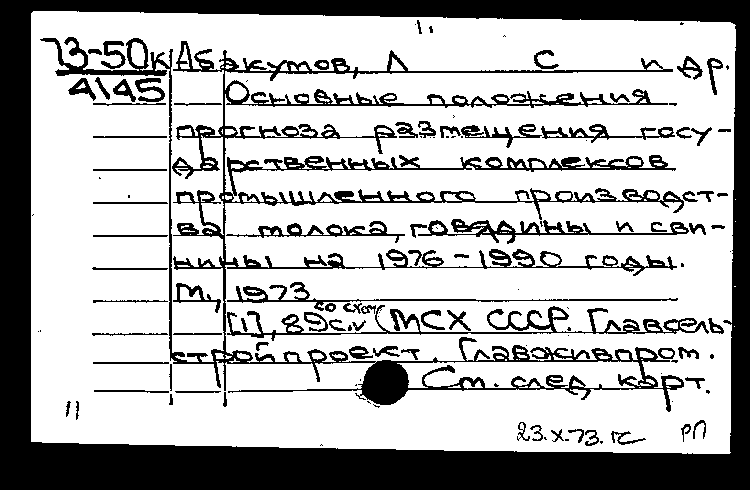 73-50к Абакумов, Л С и др.
4145 Основные положения
прогноза размещения госу-
дарственных комплексов
промышленного производст-
ва молока, говядины и сви-
нины на 1976-1990 годы.
М., 1973
со схем
[1], 89с. (МСХ СССР. Главсель-
стройпроект. Главживпром.
См. след. карт.
11
23.X.73. РП